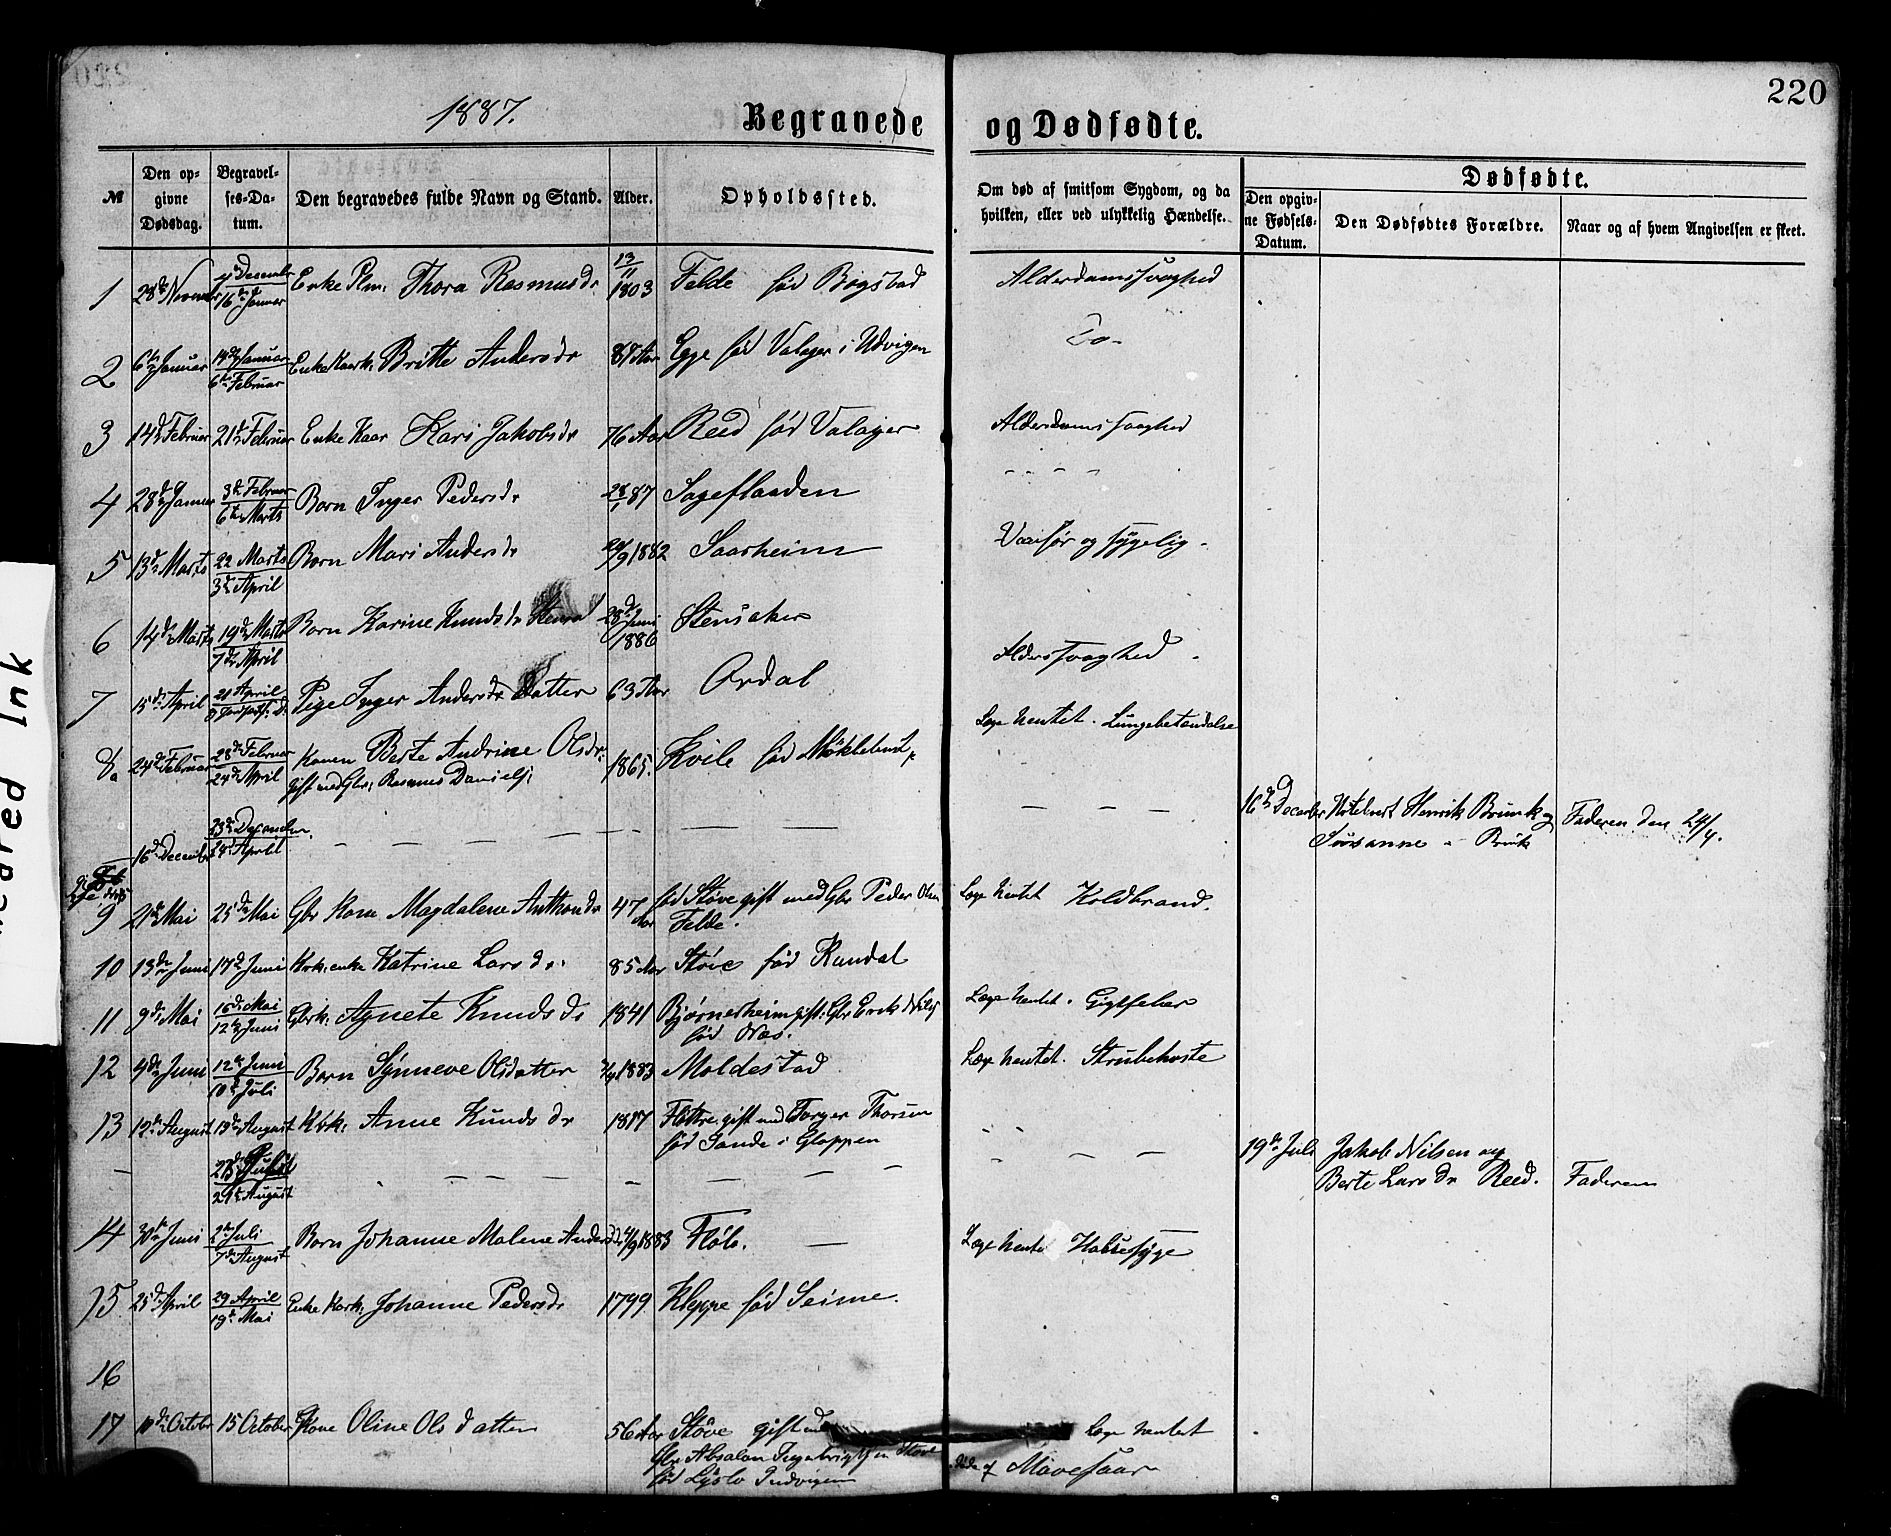 220
1887.
Begravede og Dødfødte.
№ Den opgivne Dødsdag. Begravelses-Datum. Den begravedes fulde Navn og Stand. Alder. Opholdssted. Om død af smitsom Sygdom, og da hvilken, eller ved ulykkelig Hændelse. Dødfødte.
Den opgivne Fødsels-Datum. Den Dødfødtes Forældre. Naar og af hvem Angivelsen er skeet.
1 28de November December 16de Januar Enke Thora Rasmusdr 13/11 1803 Felde fød Bogstad Alderdomssvaghed
2 6te Januar 14de Januar 6te Februar Enke Britte Andersdr Aar Egge fød Valager i Udvigen Do-
3 14de Februar 21de Februar Enke Kaar Kari Jakobsdr 76 Aar Reed fød Valager Alderdomssvaghed
4 28de Januar 3de Februar 6te Marts Barn Inger Pedersdr 28/1 87 Sageflaaden - - - -
5 13de Marts 22 Marts 3de April Barn Mari Andersdr /9 1882 Saarheim Vanfør og sygelig -
6 14de Marts 19de Marts 7de April Barn Karine Knudsdr 28de Juni 1886 Stensaker
7 15de April 21 April Pige Inger Andersdr Datter 63 Aar Ordal Alderssvaghed -
8 24de Februar 28de Februar 24de April Konen Berte Andrine Olsdr 1865. Kvile fød Myklebust Læge hentet. Lungebetændelse
gift med Gbr: Rasmus Daniels:
16de December 23de December 24de April — — — — — — 16de December Hotelvert Henrik Brunk og Faderen den 24/4.
Susanne - Brunk
9 21de Mai 25de Mai Gbr Kone Magdalene Anthondr 47 Aar fød Støve gift med Gbr Peder Olsen Læge hentet Koldbrand.
Felde.
10 13de Juni 17de Juni Krk: enke Katrine Larsdr: 85 Aar Støve fød Kandal
11 9de Mai 16de Mai 12te Juni Gbrk: Agnete Knudsdr 1841 Bjørnerheim gift: Gbr Læge hentet. Gigtfeber
fød Næs.
12 4de Juni 12te Juni 10de Juli Barn Synneve Olsdatter 1883 Moldestad Læge hentet. Strubehoste
13 12te August 19de August Krk: Anne Knudsdr 1817 Fløttre gift med Torger Thorsen
fød Sande i Gloppen
— 21de August — — — — — — 19de Juli Jakob Nilsen og
Berte Larsdr Reed. Faderen
14 30te Juni 2den Juli 7de August Barn Johanne Malene Andersdr /9 1883 FløLo. — Læge hentet Halsesyge
15 25de April 29 April 19de Mai Enke Kark: Johanne Pedersdr 1799 Kleppe fød Seime.
16
17 10de October 15 October Kone Oline Olsdatter 56 Aar Støve gift med Læge hentet
Gbr Absalon Ingebrigtsen Støve Døde af Mavesaar
fød Lyslo Indvigen